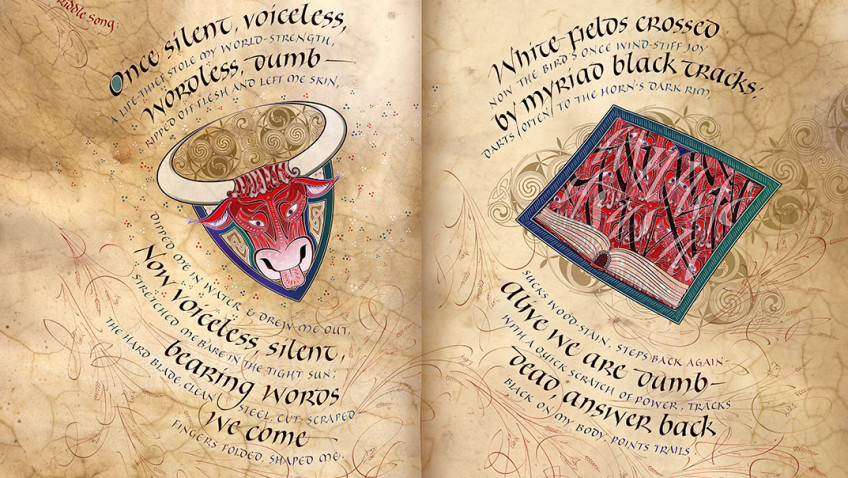 Riddle song
Once silent, voiceless,
A LIFE-THIEF STOLE MY WORLD-STRENGTH,
Wordless, dumb —
RIPPED OFF FLESH AND LEFT ME SKIN,
DIPPED ME IN WATER & DREW ME OUT,
Now voiceless, silent,
STRETCHED ME BARE IN THE TIGHT SUN;
bearing words
THE HARD BLADE, CLEAN STEEL, CUT, SCRAPED
We come
FINGERS FOLDED, SHAPED ME.
White fields crossed
NOW THE BIRD'S ONCE WIND-STIFF JOY
by myriad black tracks;
DARTS OFTEN TO THE HORN'S DARK RIM,
SUCKS WOOD STAIN, STEPS BACK AGAIN -
Alive we are dumb —
WITH A QUICK SCRATCH OF POWER, TRACKS
Dead, answer back
BLACK ON MY BODY, POINTS TRAILS